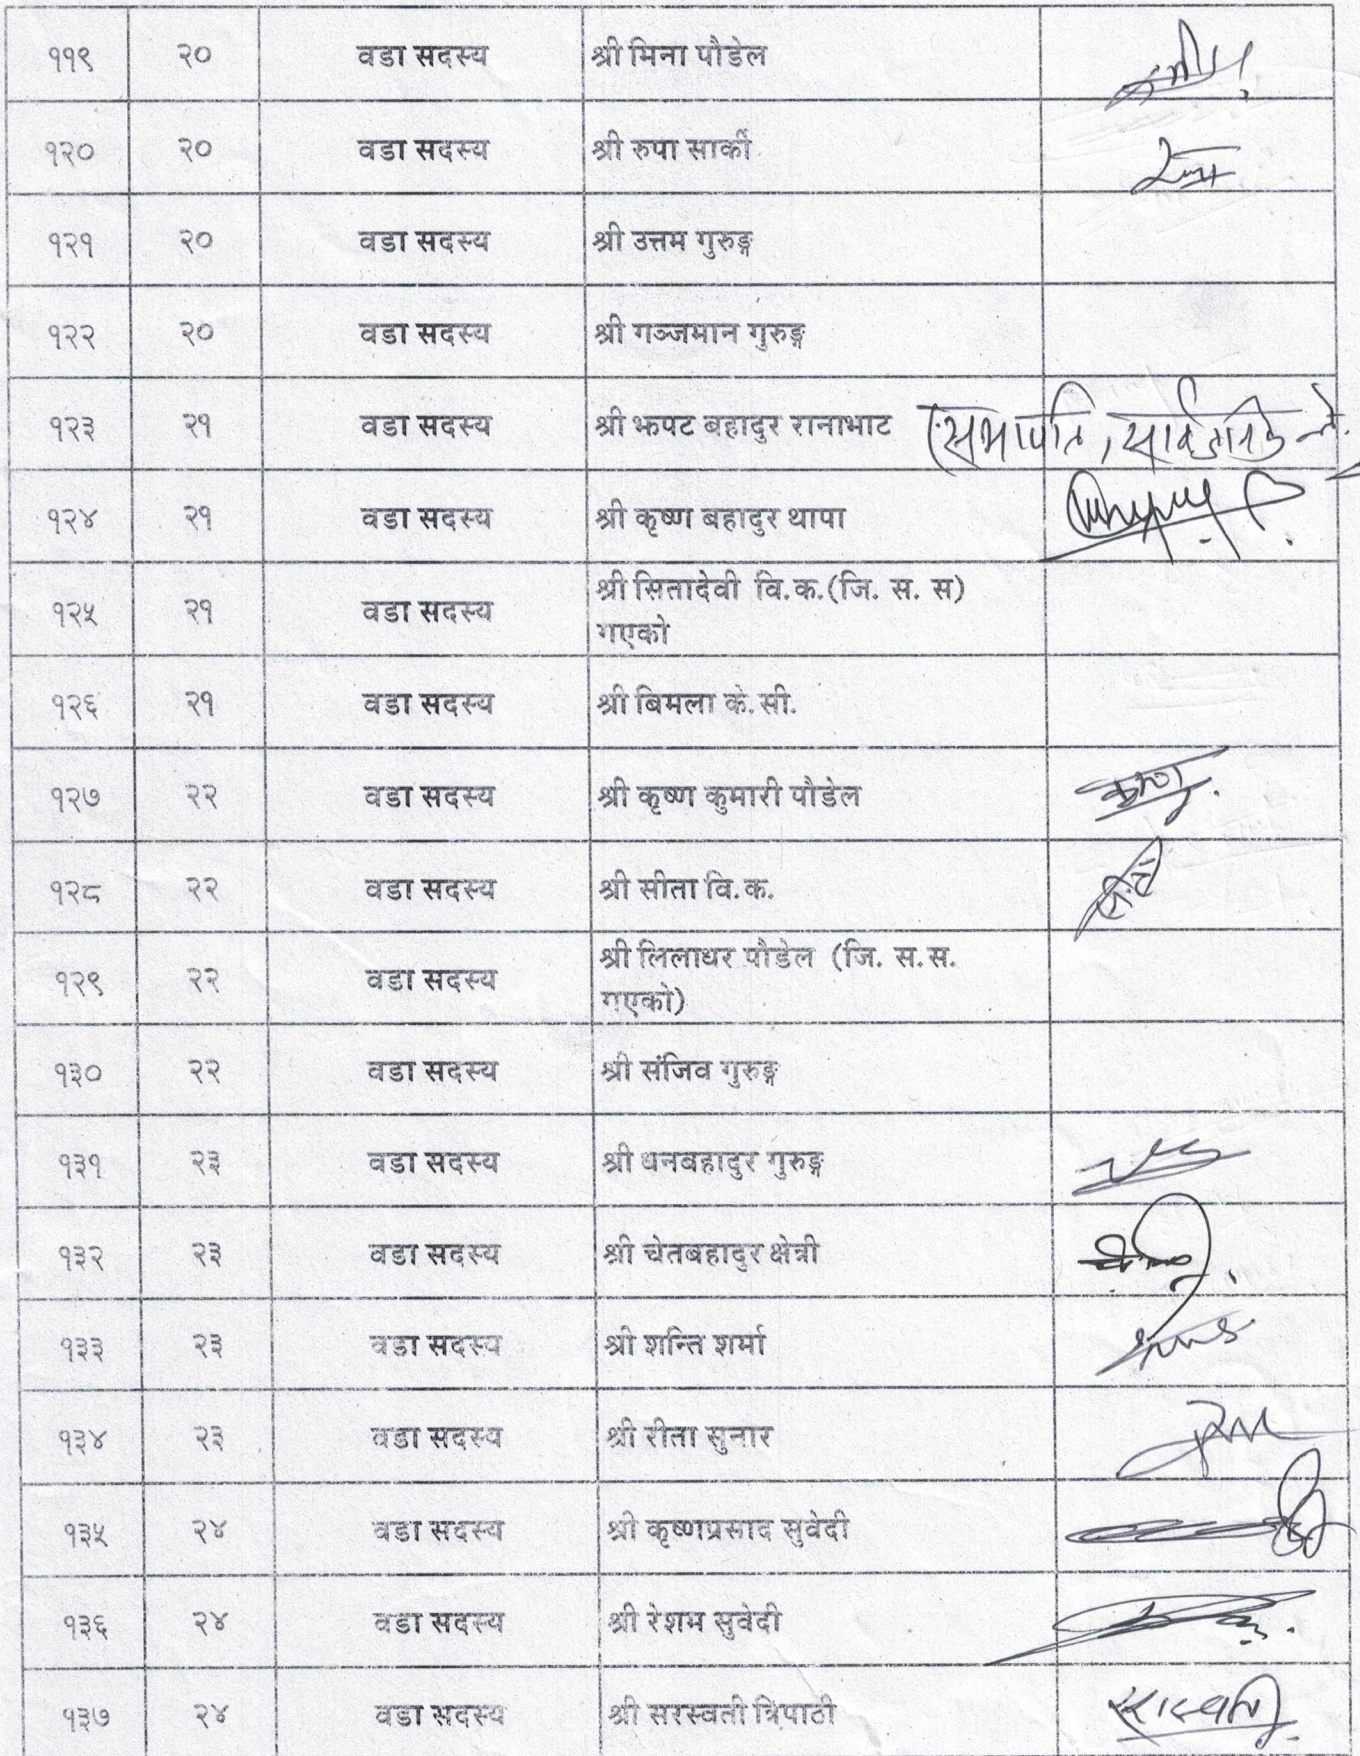 ११९ २० वडा सदस्य श्री मिना पौडेल
१२० २० वडा सदस्य श्री रुपा सार्की
१२१ २० वडा सदस्य श्री उत्तम गुरुङ्ग
१२२ २० वडा सदस्य श्री गञ्जमान गुरुङ्ग
१२३ २१ वडा सदस्य श्री झपट बहादुर रानाभाट (सभापति, सार्वजनिक
१२४ २१ वडा सदस्य श्री कृष्ण बहादुर थापा
१२५ २१ वडा सदस्य श्री सितादेवी वि.क.(जि. स. स)
गएको
१२६ २१ वडा सदस्य श्री बिमला के.सी.
१२७ २२ वडा सदस्य श्री कृष्ण कुमारी पौडेल
१२८ २२ वडा सदस्य श्री सीता वि.क.
१२९ २२ वडा सदस्य श्री लिलाधर पौडेल (जि. स.स.
गएको)
१३० २२ वडा सदस्य श्री संजिव गुरुङ्ग
१३१ २३ वडा सदस्य श्री धनबहादुर गुरुङ्ग
१३२ २३ वडा सदस्य श्री चेतबहादुर क्षेत्री
१३३ २३ वडा सदस्य श्री शन्ति शर्मा
१३४ २३ वडा सदस्य श्री रीता सुनार
१३५ २४ वडा सदस्य श्री कृष्णप्रसाद सुवेदी
१३६ २४ वडा सदस्य श्री रेशम सुवेदी
१३७ २४ वडा सदस्य श्री सरस्वती त्रिपाठी सरस्वती